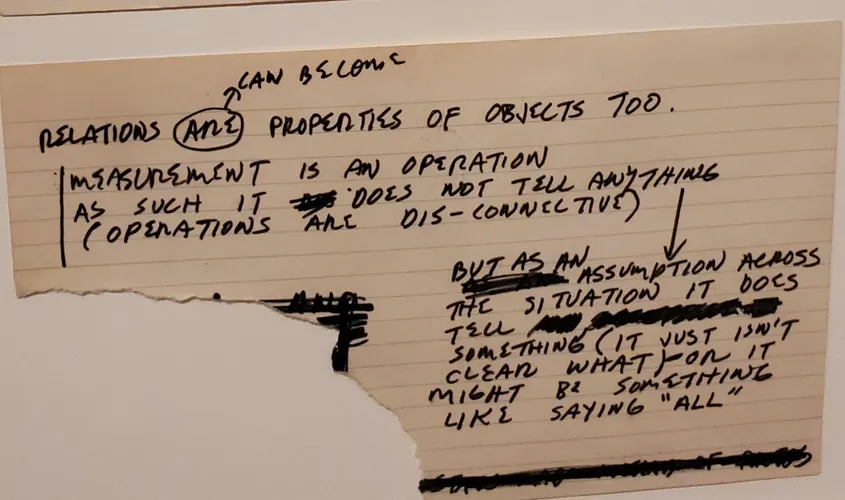 CAN BECOME
RELATIONS ARE PROPERTIES OF OBJECTS TOO.
MEASUREMENT IS AN OPERATION
AS SUCH IT DOES NOT TELL ANYTHING
(OPERATIONS ARE DIS-CONNECTIVE)
BUT AS AN ASSUMPTION ACROSS
THE SITUATION IT DOES
TELL
SOMETHING (IT JUST ISN'T
CLEAR WHAT) - OR IT
MIGHT BE SOMETHING
LIKE SAYING "ALL"